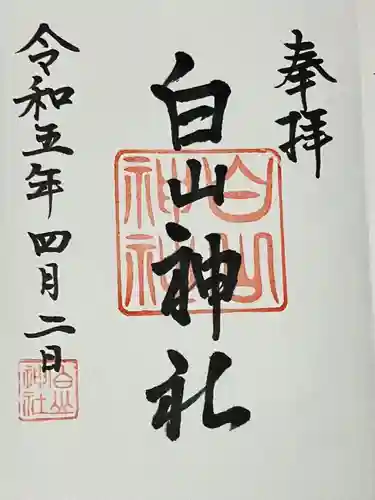 奉拝
白山神社
令和五年四月二日
白山神社
白山神社